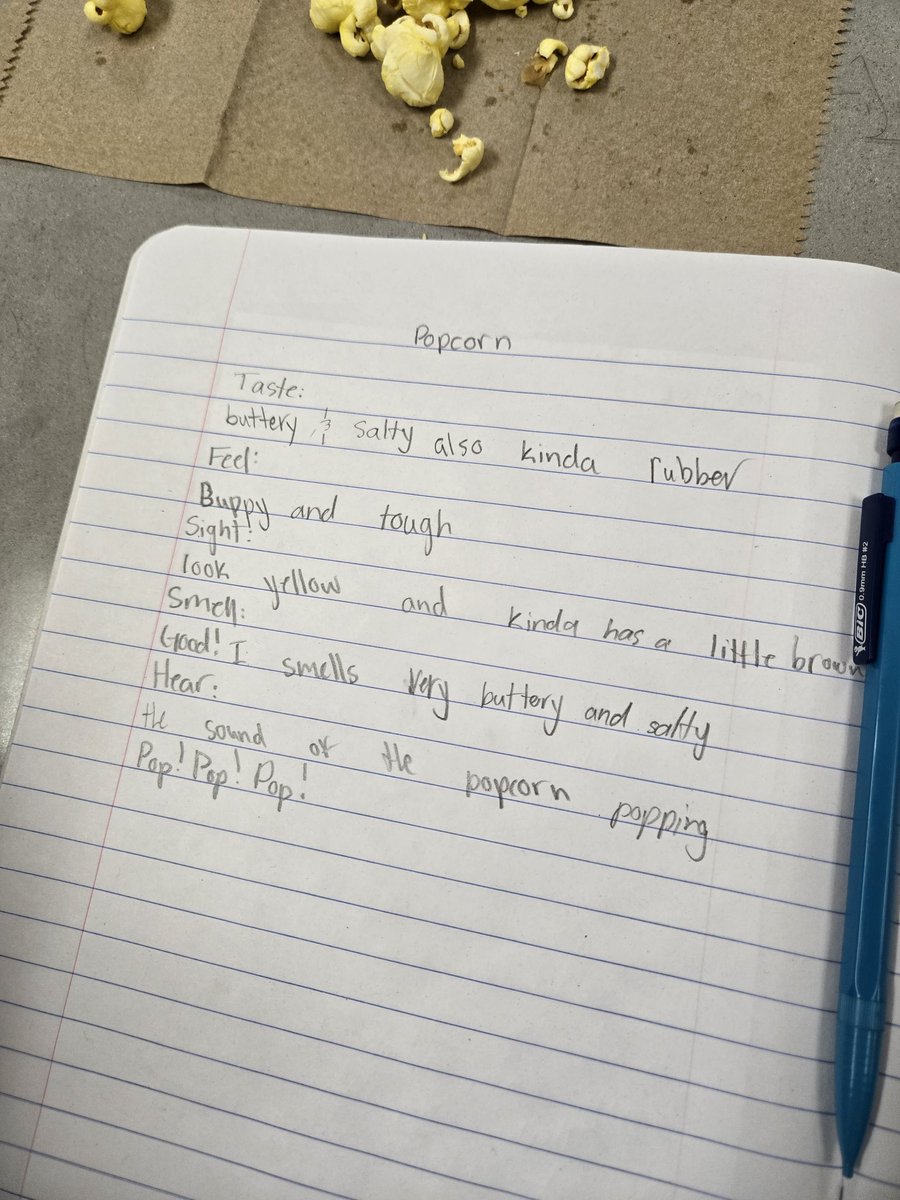 Popcorn
Taste:
buttery & salty also kinda rubber
Feel:
Buppy and tough
Sight:
look yellow and kinda has a little brown
Smell:
Good! I smells very buttery and salty
Hear:
the sound of the popcorn popping
Pop! Pop! Pop!
BIC 0.9mm HB #2